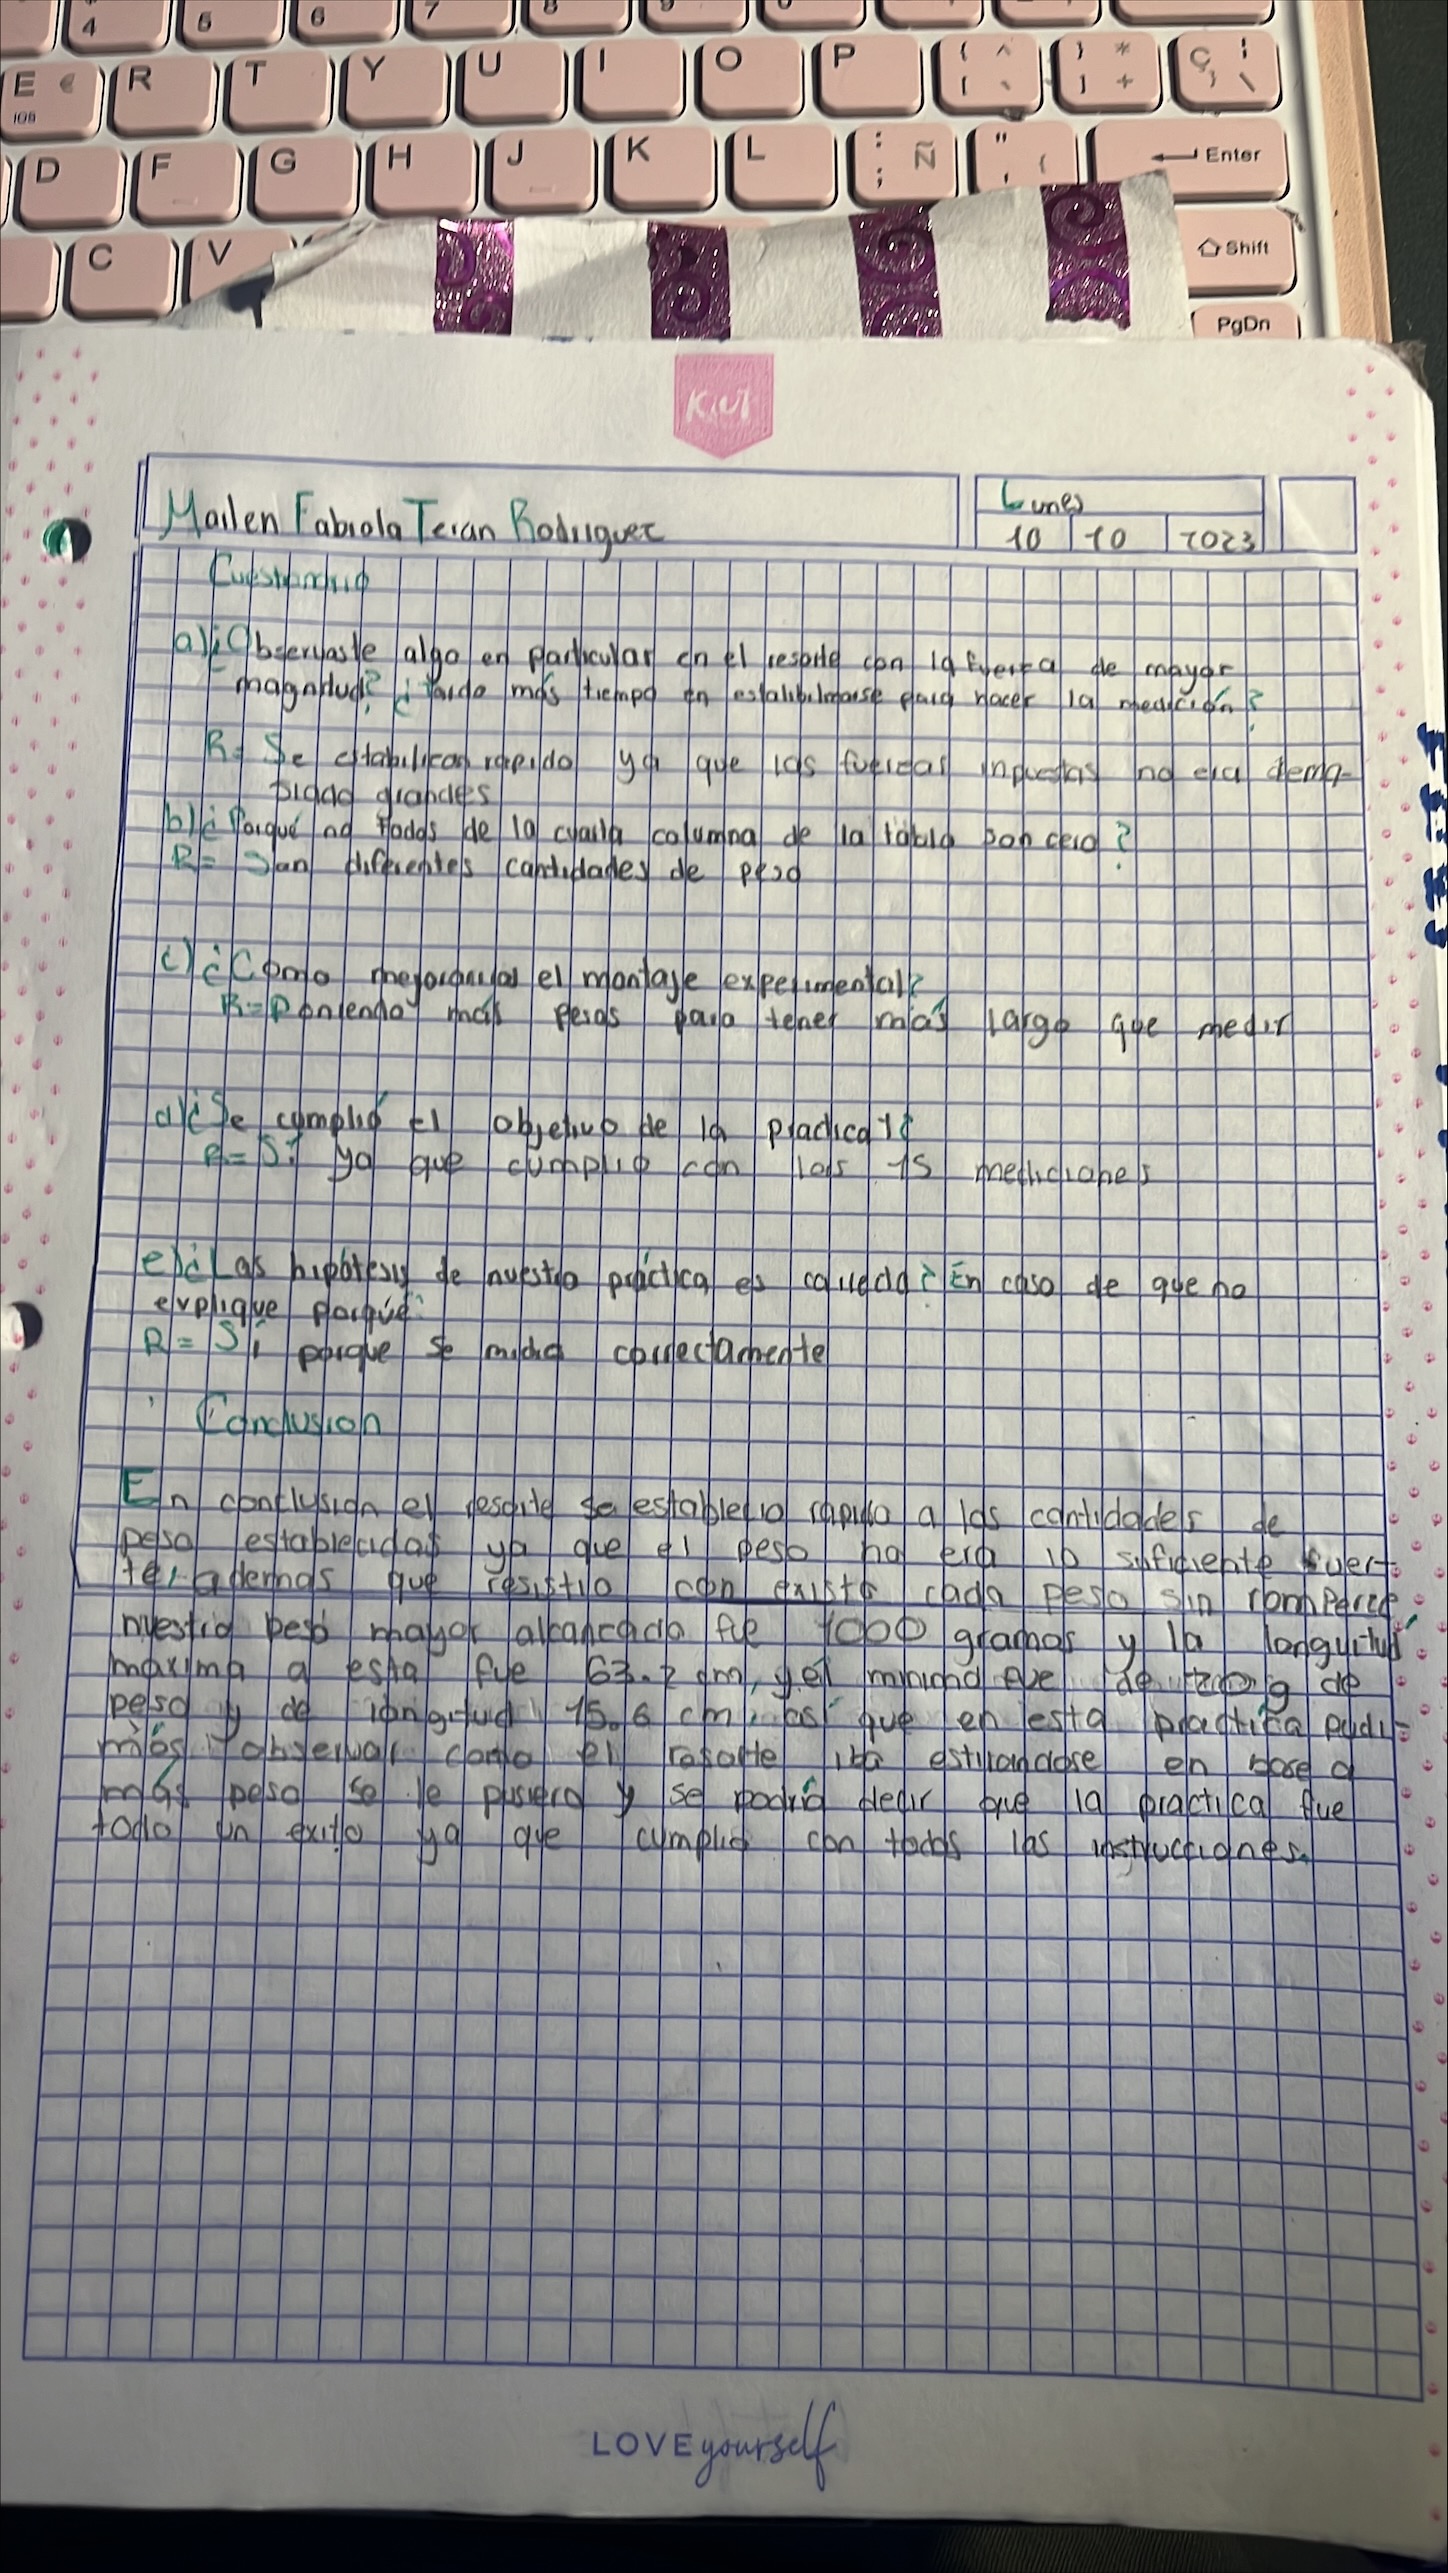 4 5 6 7 8 9
E € R T Y U I O P { ^ [ ` } * ] + Ç
D F G H J K L : ; Ñ " Enter
C V Shift
PgDn
KIUT
Mailen Fabiola Teran Rodriguez
Lunes
10 10 2023
Cuestionario
a) ¿Observaste algo en particular en el resorte con la fuerza de mayor
magnitud? ¿Tardo más tiempo en para hacer la medición?
R= Se rapido ya que las fuerzas inpuestas no era dema-
siado grandes
b) ¿Porqué no todas de la cuarta columna de la tabla son cero?
R= Son diferentes cantidades de peso
c) ¿Como mejorarias el montaje experimental?
R= Poniendo más pesas para tener más largo que medir
d) ¿Se cumplió el objetivo de la practica?
R= Sí ya que cumplio con las 15 mediciones
e) ¿Las hipótesis de nuestra práctica es En caso de que no
explique porqué
R= Si porque se midio correctamente
Conclusion
En conclusion el resorte se rapido a las cantidades de
peso establecidas ya que el peso no era lo suficiente fuer-
te, ademas que resistio con cada peso sin
nuestro peso mayor alcanzado fue 1000 gramos y la
maxima a esta fue 63.2 cm, y el minimo fue de g de
peso y de longitud 15.6 cm, así que en esta practica pudi-
mos observar como el iba estirandose en base a
más peso se le pusiera y se podría decir que la practica fue
todo un exito ya que cumplio con todas las instrucciones.
LOVE yourself